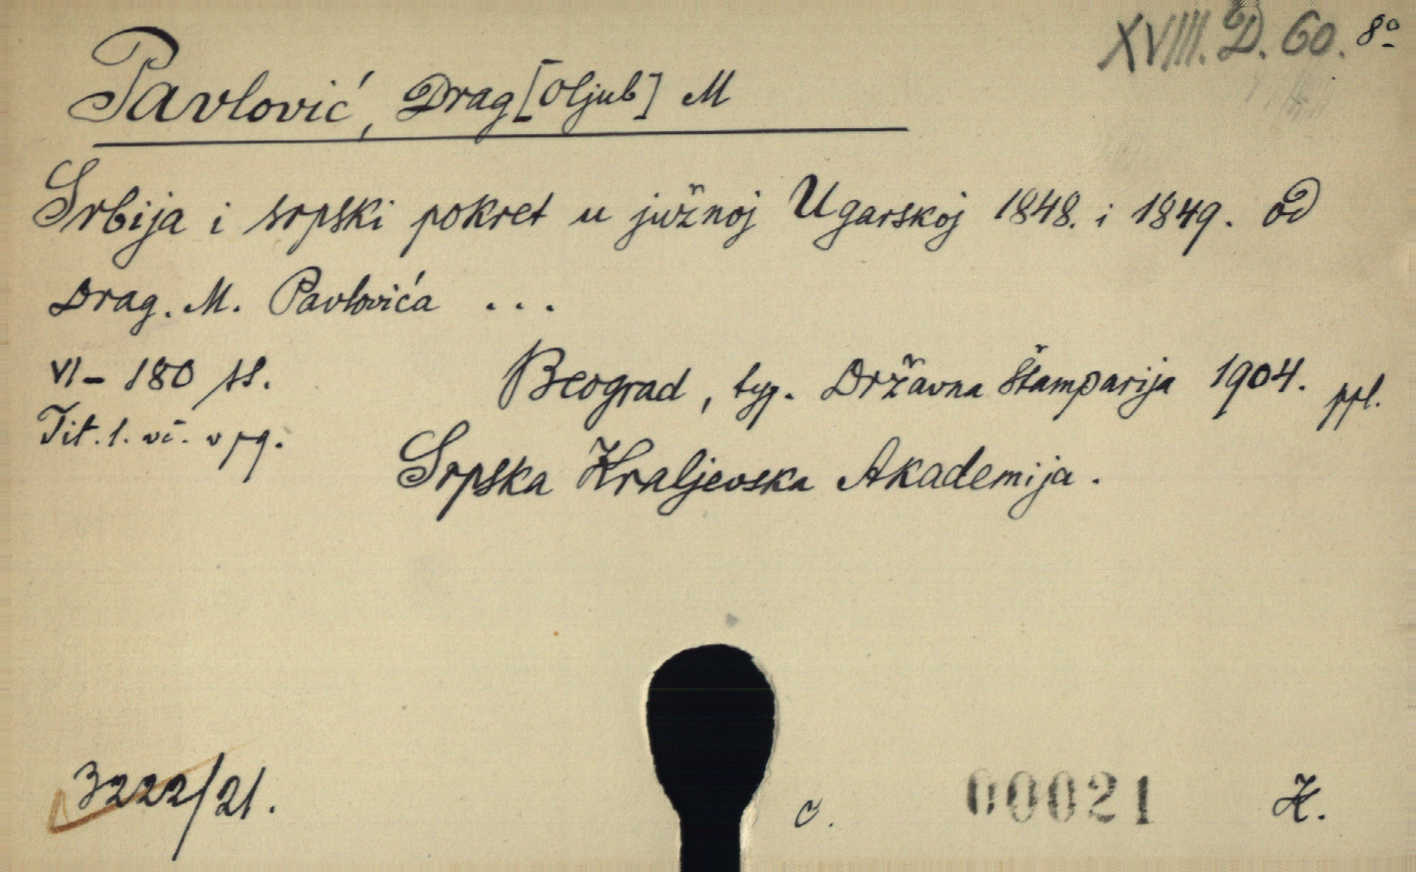 XVIII. D. 60. 8º
Pavlović, Drag[oljub] M
Srbija i srpski pokret u južnoj Ugarskoj 1848. i 1849. od
Drag. M. Pavlovića ...
VI - 180 ss. Beograd, typ. Državna štamparija 1904. ppl.
Tit. l. vč. v pg.
Srpska Kraljevska Akademija.
3222/21. c. 00021 H.